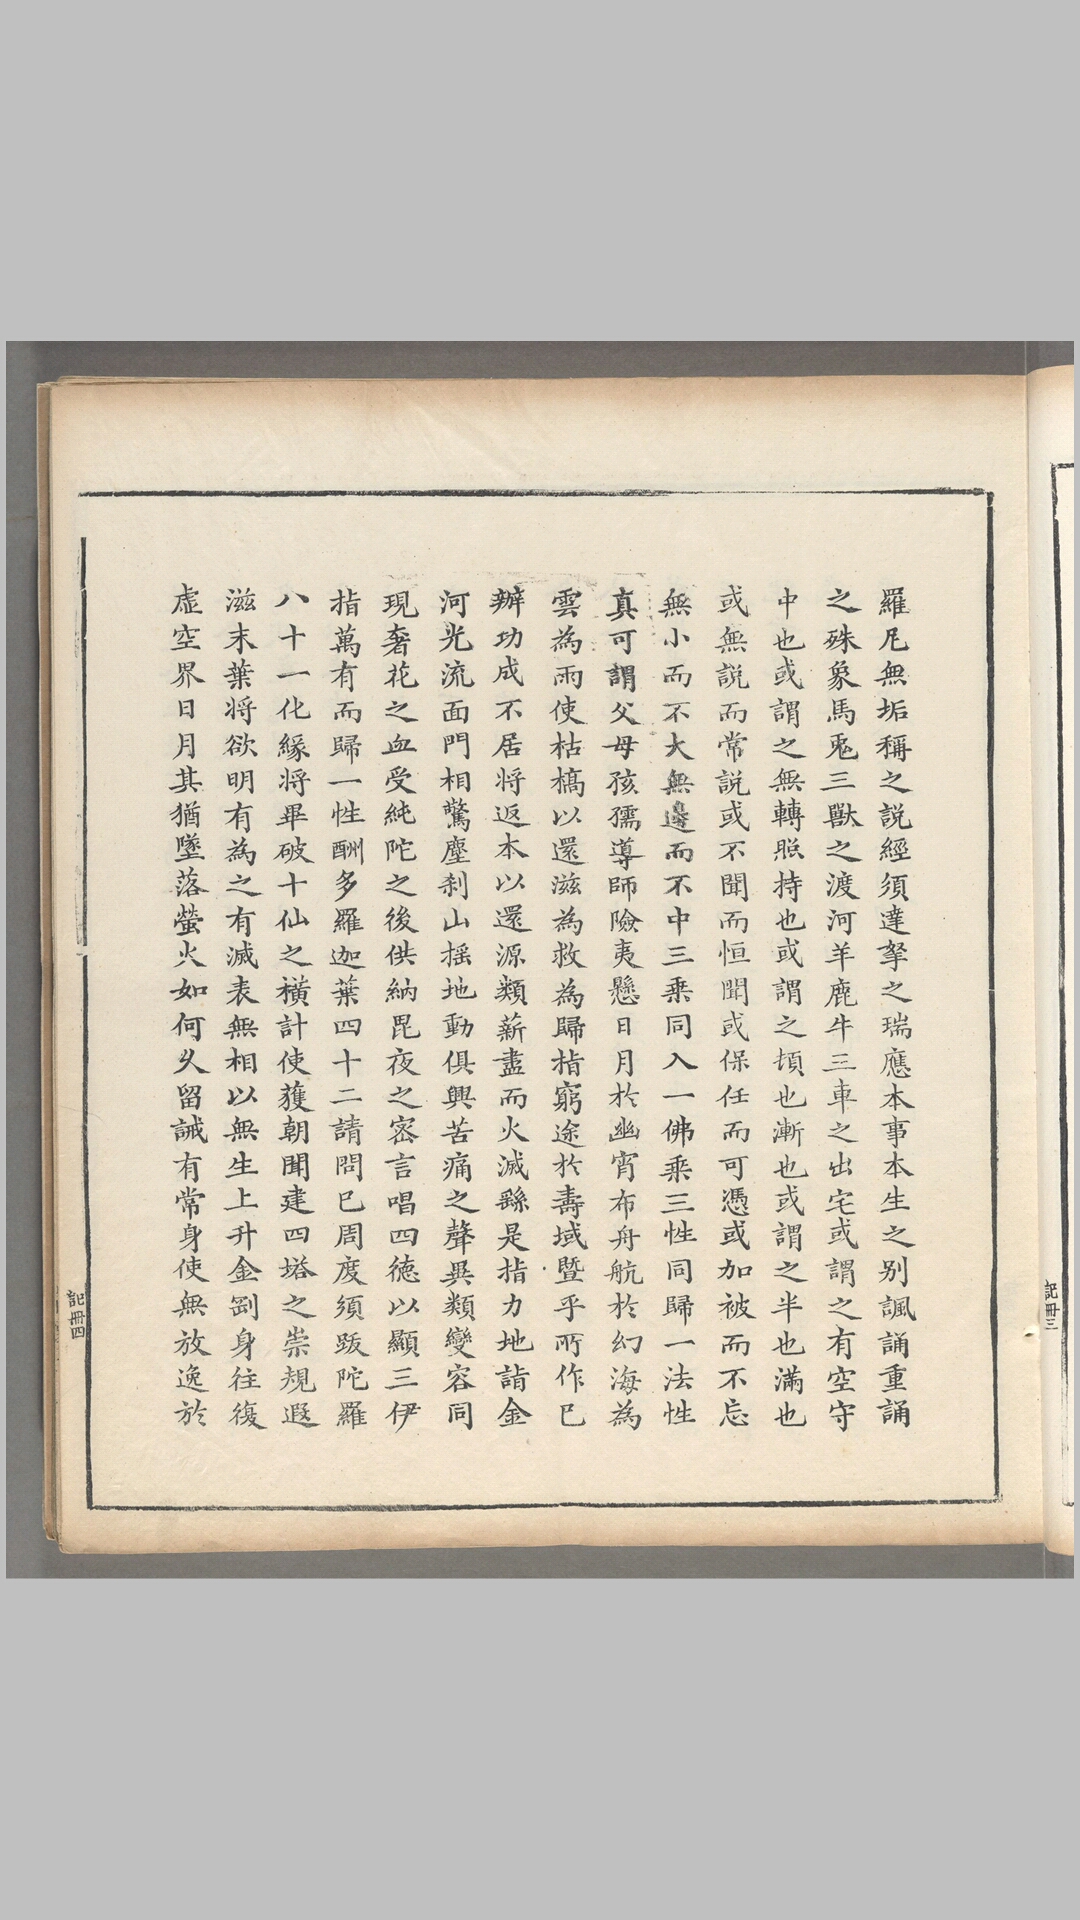 羅尼無垢稱之説經須達拏之瑞應本事本生之别諷誦重誦
之殊象馬兎三獸之渡河羊鹿牛三車之出宅或謂之有空守
中也或謂之無轉照持也或謂之頓也漸也或謂之半也滿也
或無説而常説或不聞而恒聞或保任而可憑或加被而不忘
無小而不大無邊而不中三乗同入一佛乗三性同歸一法性
真可謂父母孩孺導師險夷懸日月於幽宵布舟航於幻海為
雲為雨使枯槁以還滋為救為歸指窮途於壽域暨乎所作已
辦功成不居将返本以還源類薪盡而火滅繇是指力地詣金
河光流面門相驚塵刹山揺地動俱興苦痛之聲異類變容同
現奢花之血受純陀之後供納毘夜之密言唱四徳以顯三伊
指萬有而歸一性酬多羅迦葉四十二請問已周度須跋陀羅
八十一化緣将畢破十仙之横計使獲朝聞建四塔之崇規遐
滋末葉将欲明有為之有滅表無相以無生上升金剛身往復
虛空界日月其猶墜落螢火如何久留誡有常身使無放逸於
記冊四
記冊三